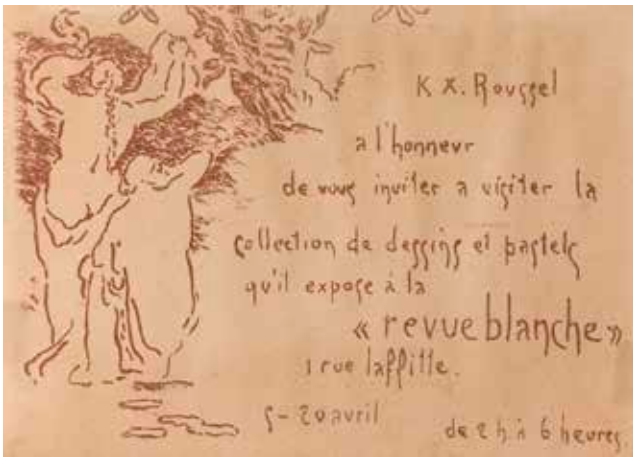 K X. Roussel
a l'honneur
de vous inviter a visiter la
collection de dessins et pastels
qu'il expose à la
« revue blanche »
1 rue laffitte.
5 - 20 avril
de 2 h à 6 heures.